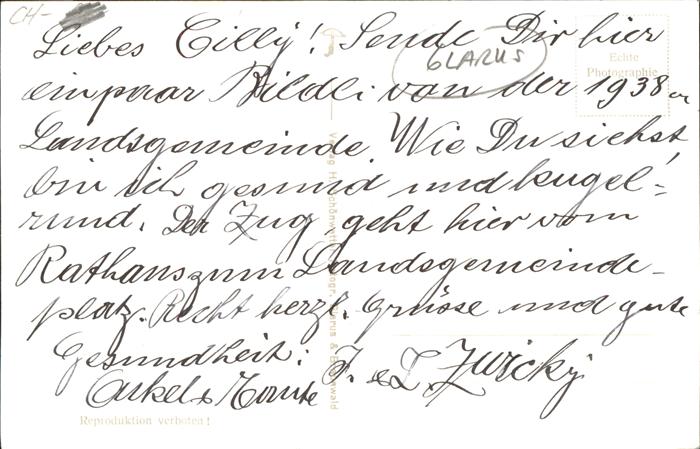 CH-
Liebes Cilly! Sende Dir hier
GLARUS
Echte
Photographie
ein paar Bildli von der 1938er
Landsgemeinde. Wie Du siehst,
bin ich gesund und kugel=
rund. Der Zug geht hier vom
Rathaus zum Landsgemeinde-
platz. Recht herzl. Grüsse und gute
Gesundheit:
Onkel & Tante J. & L. Zwicky
Verlag H. Schönwetter, Photogr. Glarus & Braunwald
Reproduktion verboten!